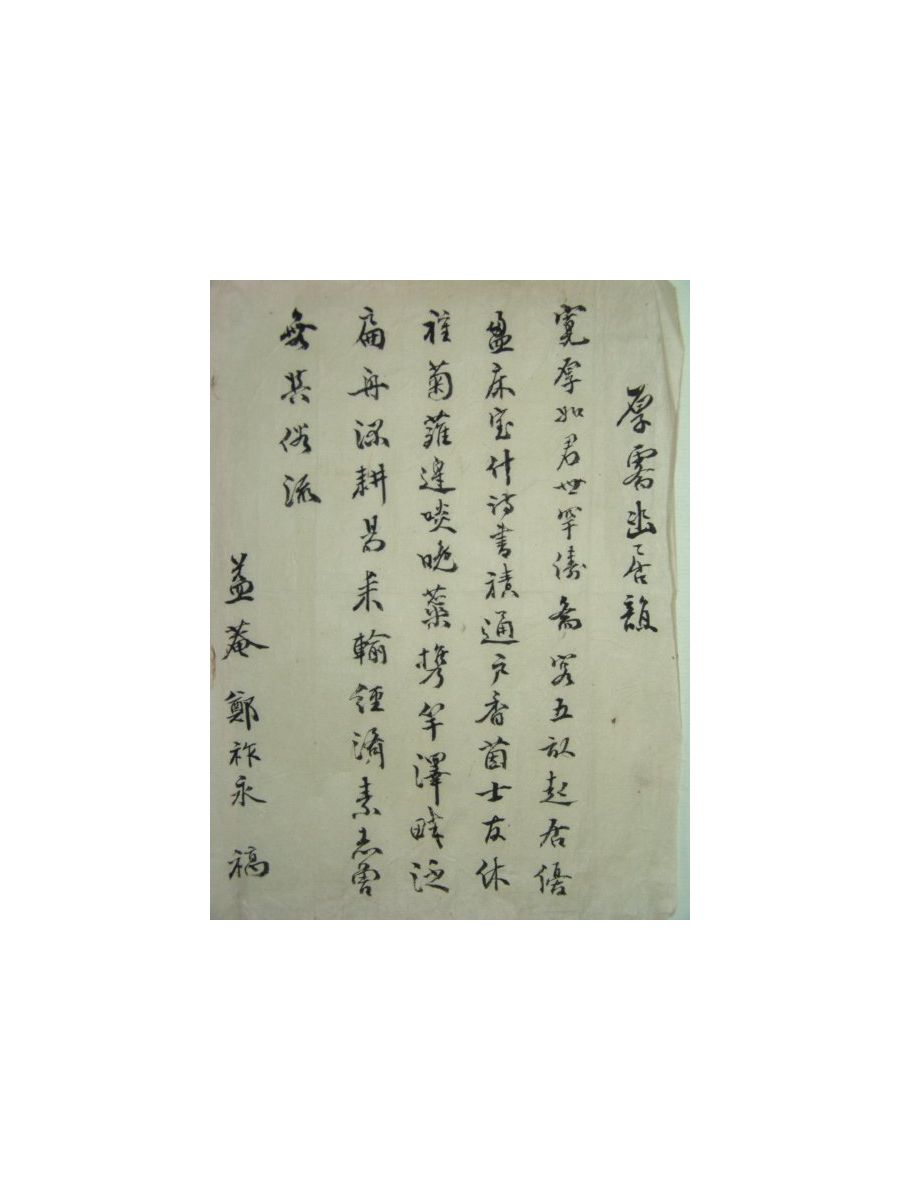 厚幽居韻
寬厚如君世罕儔容五畝起居優
盈床宝什詩書積通戶香茵士友休
種菊籬邊啖晚蘂携竿澤畔泛
扁舟深耕易耒輸經濟素志曾
無共俗流
益菴鄭祚永稿